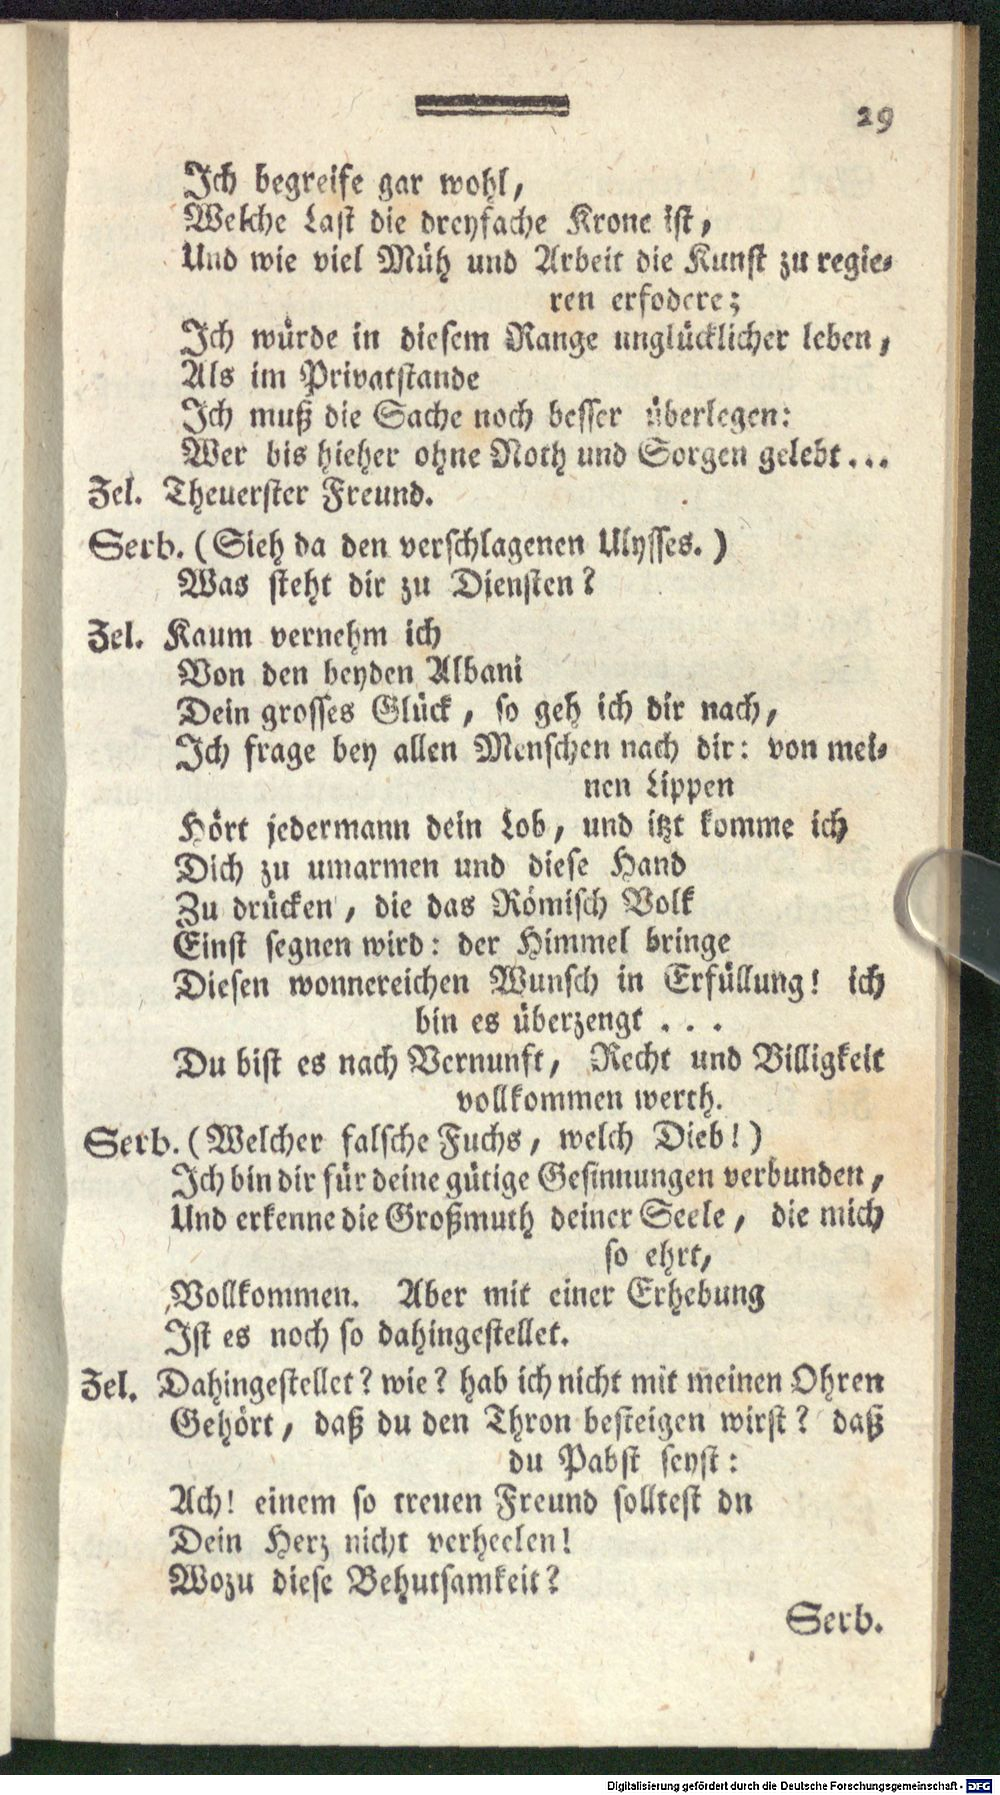 29
Ich begreife gar wohl,
Welche Last die dreyfache Krone ist,
Und wie viel Müh und Arbeit die Kunst zu regie-
ren erfodere;
Ich würde in diesem Range unglücklicher leben,
Als im Privatstande
Ich muß die Sache noch besser überlegen:
Wer bis hieher ohne Noth und Sorgen gelebt...
Zel. Theuerster Freund.
Serb. (Sieh da den verschlagenen Ulysses.)
Was steht dir zu Diensten?
Zel. Kaum vernehm ich
Von den beyden Albani
Dein grosses Glück, so geh ich dir nach,
Ich frage bey allen Menschen nach dir: von mei-
nen Lippen
Hört jedermann dein Lob, und itzt komme ich
Dich zu umarmen und diese Hand
Zu drücken, die das Römisch Volk
Einst segnen wird: der Himmel bringe
Diesen wonnereichen Wunsch in Erfüllung! ich
bin es überzengt . . .
Du bist es nach Vernunft, Recht und Billigkeit
vollkommen werth.
Serb. (Welcher falsche Fuchs, welch Dieb!)
Ich bin dir für deine gütige Gesinnungen verbunden,
Und erkenne die Großmuth deiner Seele, die mich
so ehrt,
Vollkommen. Aber mit einer Erhebung
Ist es noch so dahingestellet.
Zel. Dahingestellet? wie? hab ich nicht mit meinen Ohren
Gehört, daß du den Thron besteigen wirst? daß
du Pabst seyst:
Ach! einem so treuen Freund solltest dn
Dein Herz nicht verheelen!
Wozu diese Behutsamkeit?
Serb.
Digitalisierung gefördert durch die Deutsche Forschungsgemeinschaft - DFG